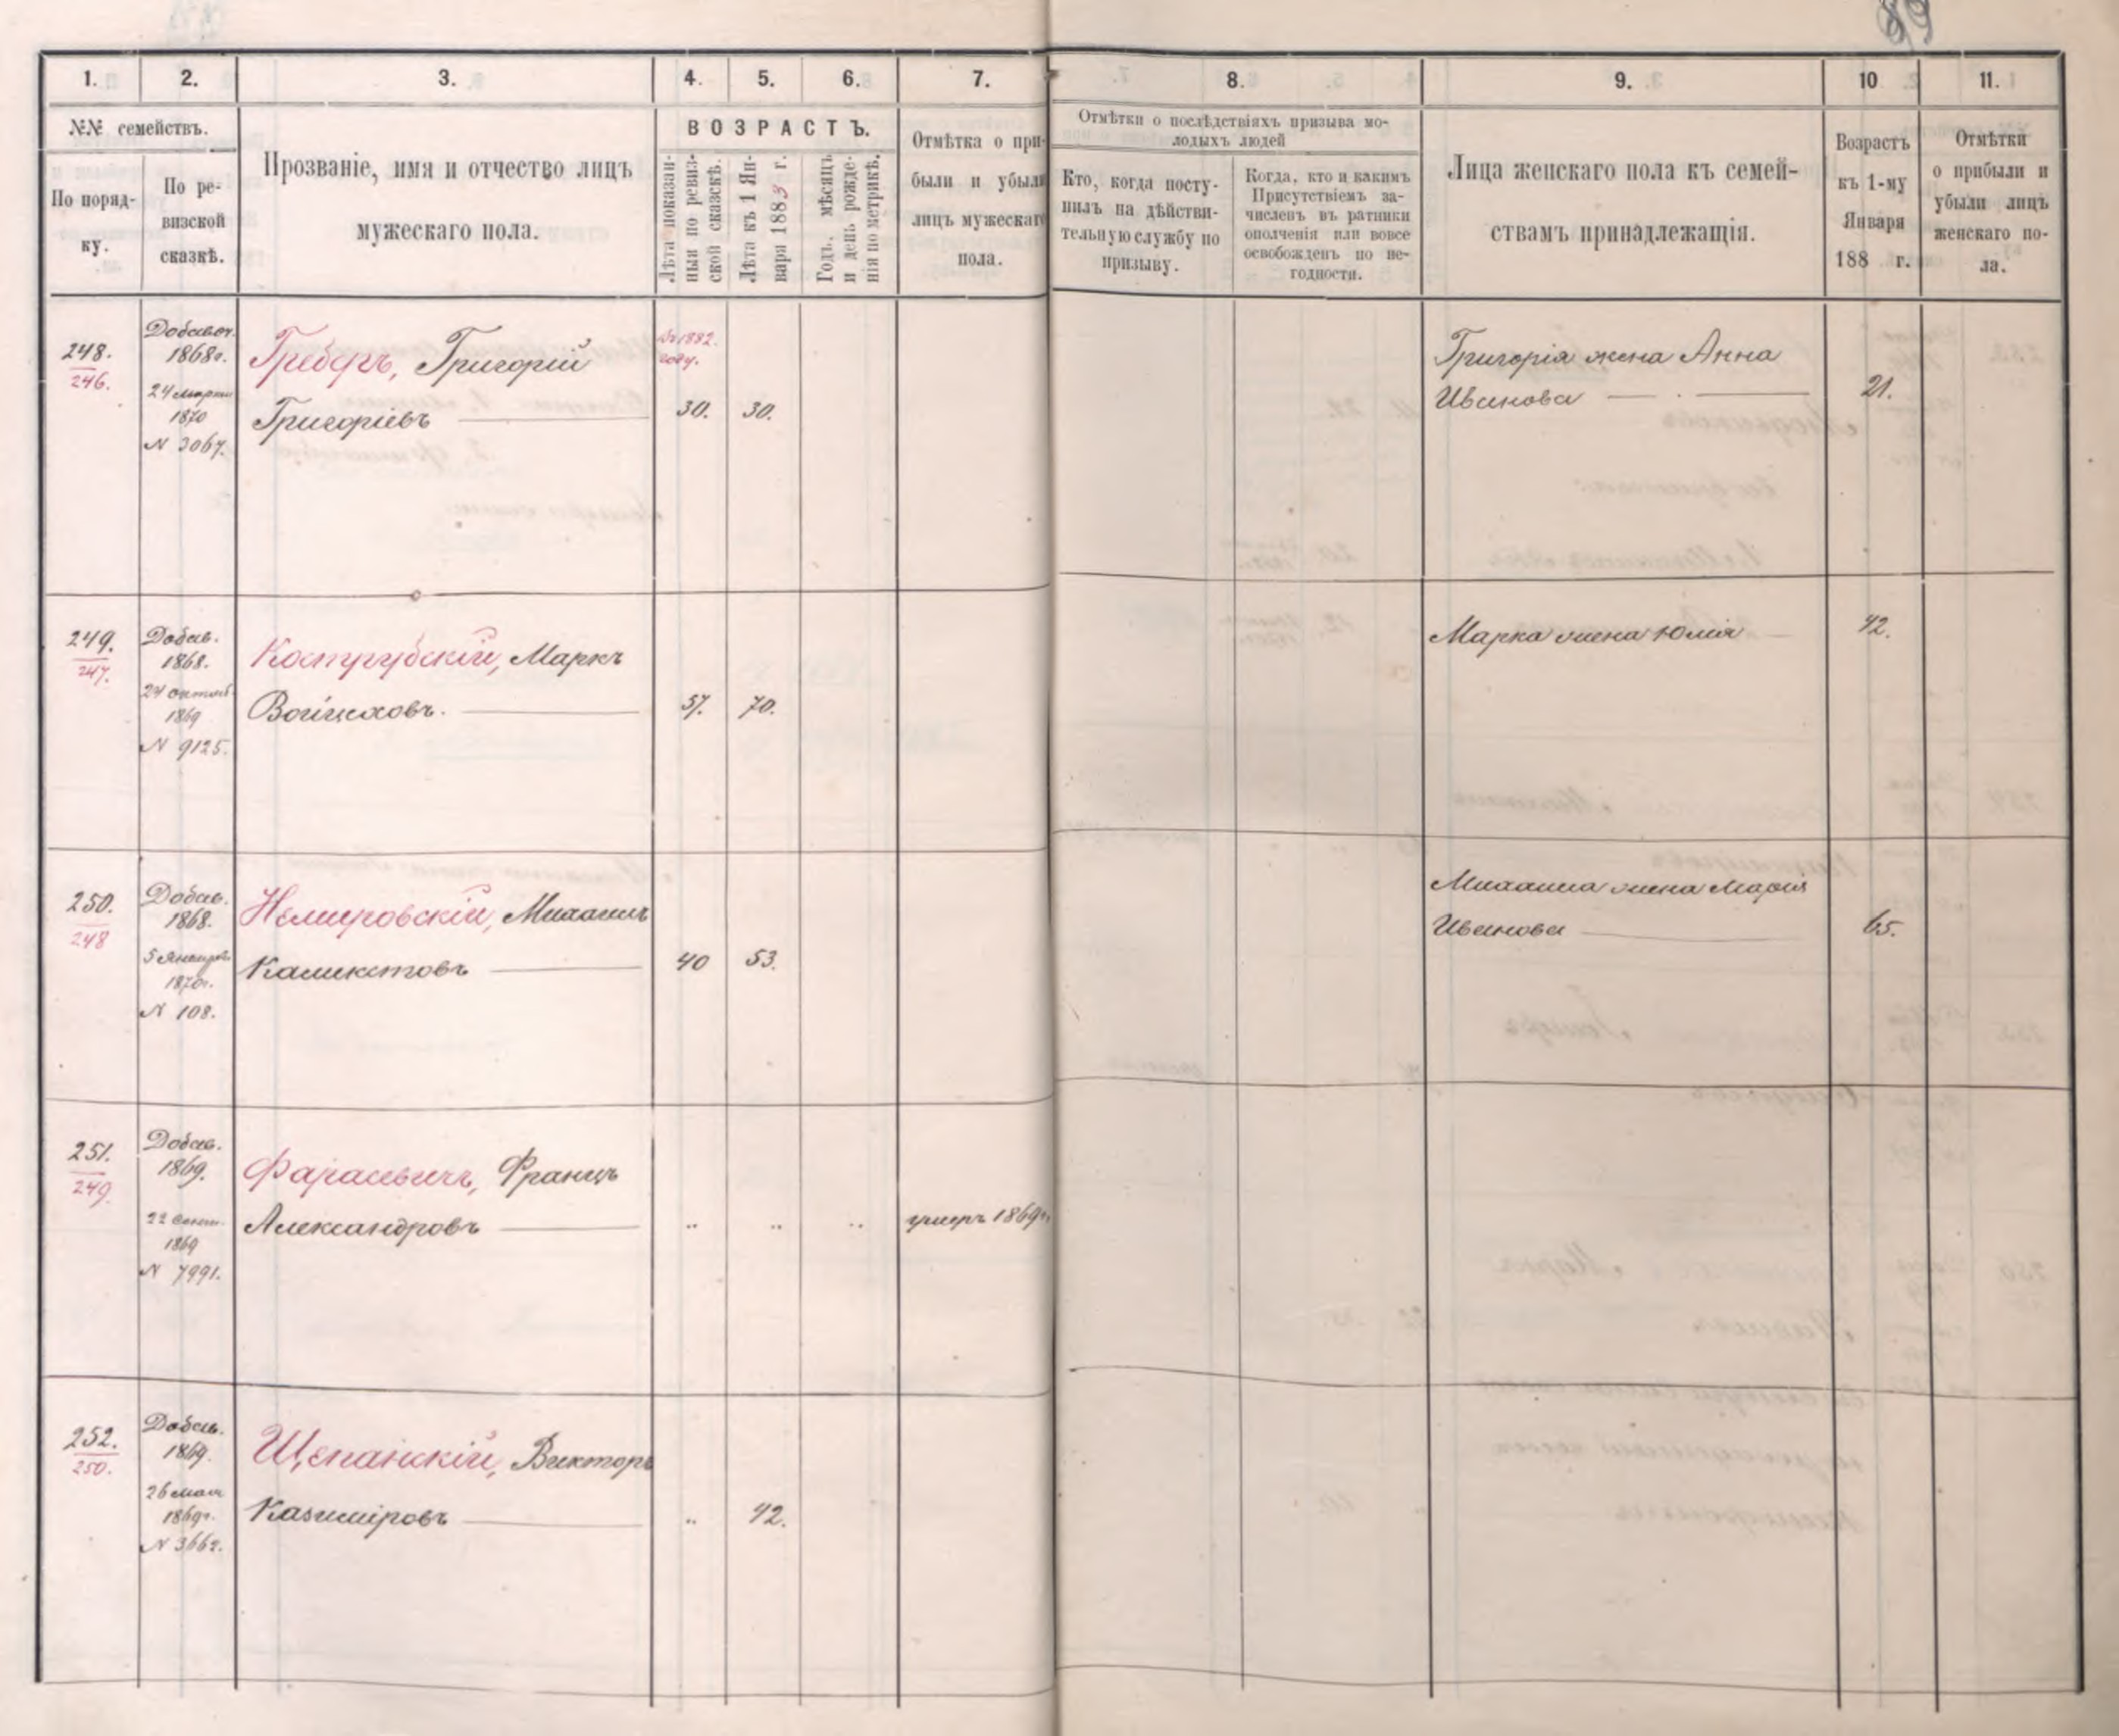 89
1. 2. 3. 4. 5. 6. 7. 8. 9. 10 11.
№№ семействъ.
По поряд-
ку.
По ре-
визской
сказкѣ.
Прозваніе, имя и отчество лицъ
мужескаго пола.
ВОЗРАСТЪ.
Лѣта показан-
ныя по ревиз-
ской сказкѣ.
Лѣта къ 1 Ян-
варя 1883 г.
Годъ, мѣсяцъ
и день рожде-
нія по метрикѣ.
Отмѣтка о при-
были и убыли
лицъ мужескаго
пола.
Отмѣтки о послѣдствіяхъ призыва мо-
лодыхъ людей
Кто, когда посту-
пилъ на дѣйстви-
тельную службу по
призыву.
Когда, кто и какимъ
Присутствіемъ за-
численъ въ ратники
ополченія или вовсе
освобожденъ по не-
годности.
Лица женскаго пола къ семей-
ствамъ принадлежащія.
Возрастъ
къ 1-му
Января
188 г.
Отмѣтки
о прибыли и
убыли лицъ
женскаго по-
ла.
248.
246.
Добавоч.
1868г.
24 марта
1870
N 3067.
Греберъ, Григорій
Григоріевъ
Въ 1882.
году.
30. 30.
Григорія жена Анна
Иванова
21.
249.
247.
Добав.
1868.
24 октяб.
1869
N 9125.
Кострубскій, Маркъ
Войцеховъ.
57. 70.
Марка жена Юлія
42.
250.
248
Добав.
1868.
5 Января
1870г.
N 108.
Немировскій, Михаилъ
Каликстовъ
40 53.
Михаила жена Марія
Иванова
65.
251.
249.
Добав.
1869.
22 Сент.
1869
N 7991.
Фарасевичъ, Францъ
Александровъ
.. .. ..
умеръ 1869г.
252.
250.
Добав.
1869.
26 мая
1869г.
N 3662.
Щепанскій, Викторъ
Казиміровъ
.. 42.